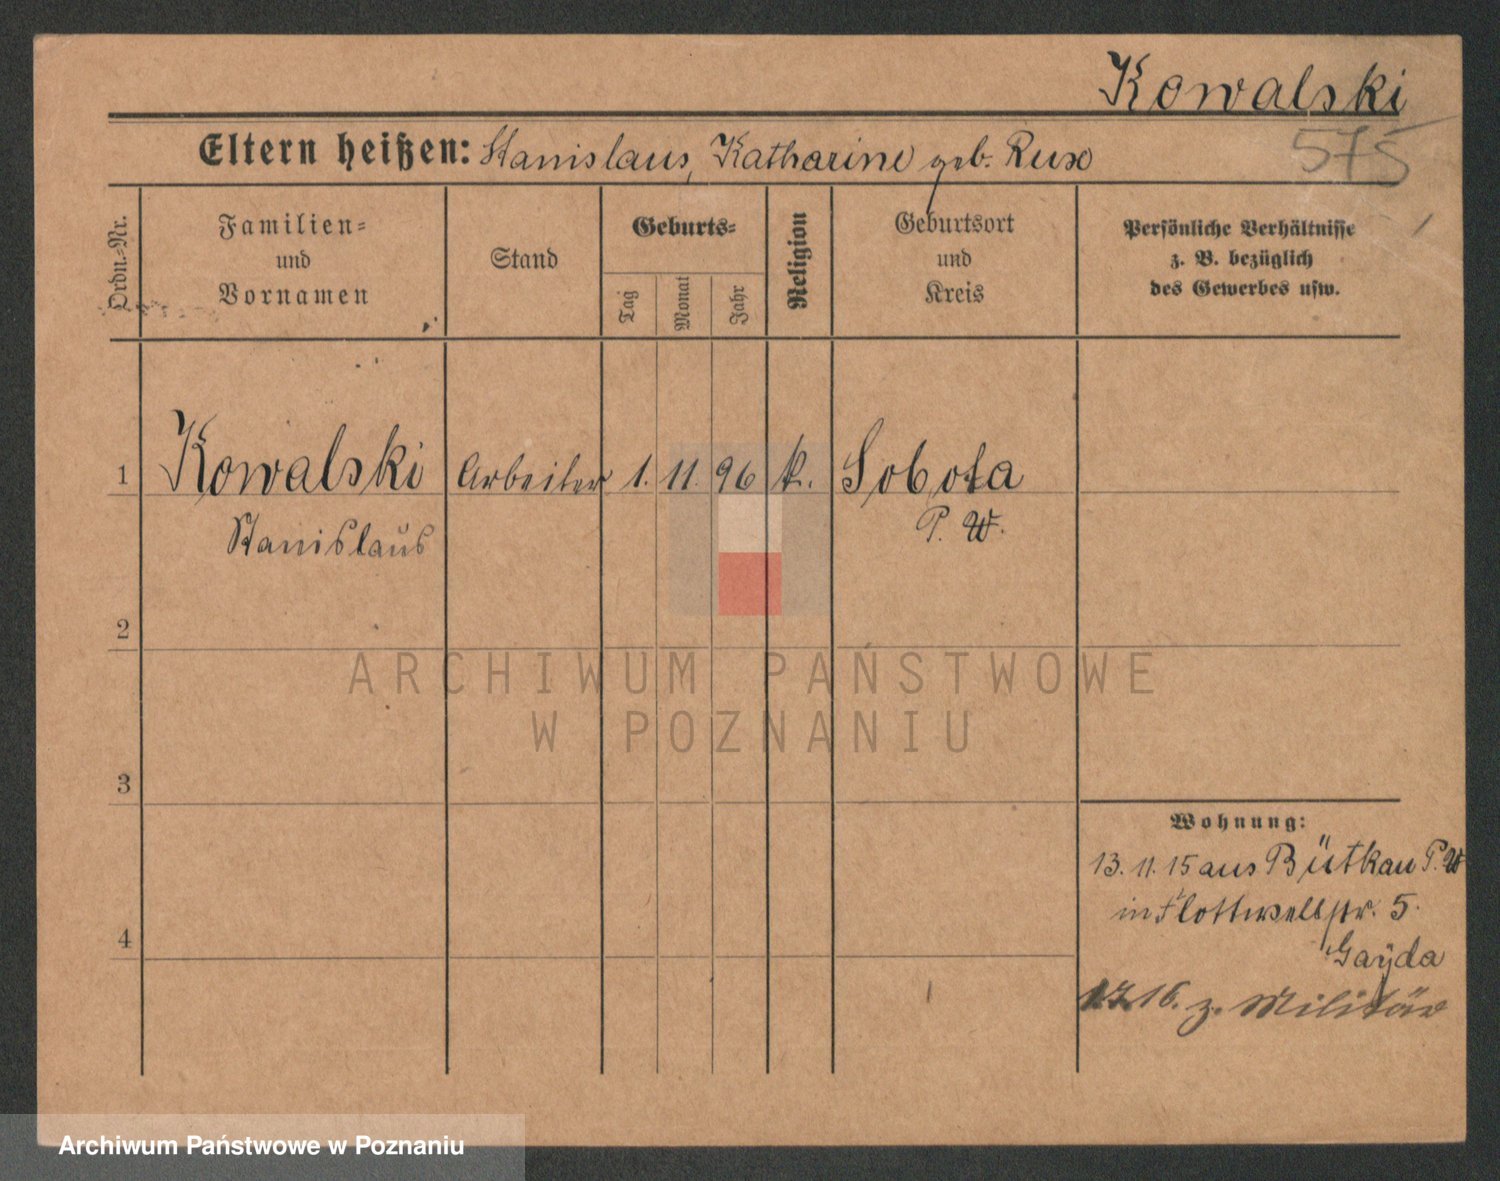 Kowalski
575
Eltern heißen: Stanislaus, Katharine geb. Rux
Ordn.-Nr.
Familien- und Vornamen
Stand
Geburts-
Tag
Monat
Jahr
Religion
Geburtsort und Kreis
Persönliche Verhältnisse z. B. bezüglich des Gewerbes usw.
1 Kowalski Arbeiter 1. 11. 96 k. Sobota
Stanislaus P. W.
2
3
4
Wohnung:
13. 11. 15 aus Bütkau P. W
in Flottwellstr. 5.
Gayda
16. z. Militär
ARCHIWUM PAŃSTWOWE
W POZNANIU
Archiwum Państwowe w Poznaniu